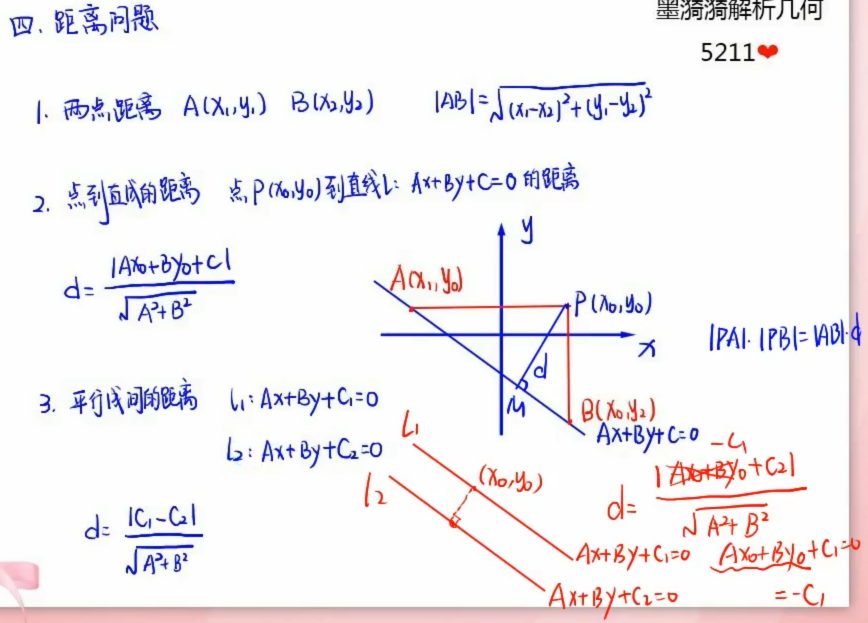 墨漪漪解析几何
5211❤
四、距离问题
1. 两点距离 A(x₁,y₁) B(x₂,y₂) |AB|=√((x₁-x₂)²+(y₁-y₂)²)
2. 点到直线的距离 点P(x₀,y₀)到直线L: Ax+By+C=0的距离
d=|Ax₀+By₀+C|/√(A²+B²)
y
A(x₁,y₀)
P(x₀,y₀)
x
d
M
B(x₀,y₂)
Ax+By+C=0
|PA|·|PB|=|AB|·d
3. 平行线间的距离 l₁: Ax+By+C₁=0
l₂: Ax+By+C₂=0
d=|C₁-C₂|/√(A²+B²)
L₁
l₂
(x₀,y₀)
Ax+By+C₁=0
Ax+By+C₂=0
-C₁
d=|Ax₀+By₀+C₂|/√(A²+B²)
Ax₀+By₀+C₁=0
=-C₁